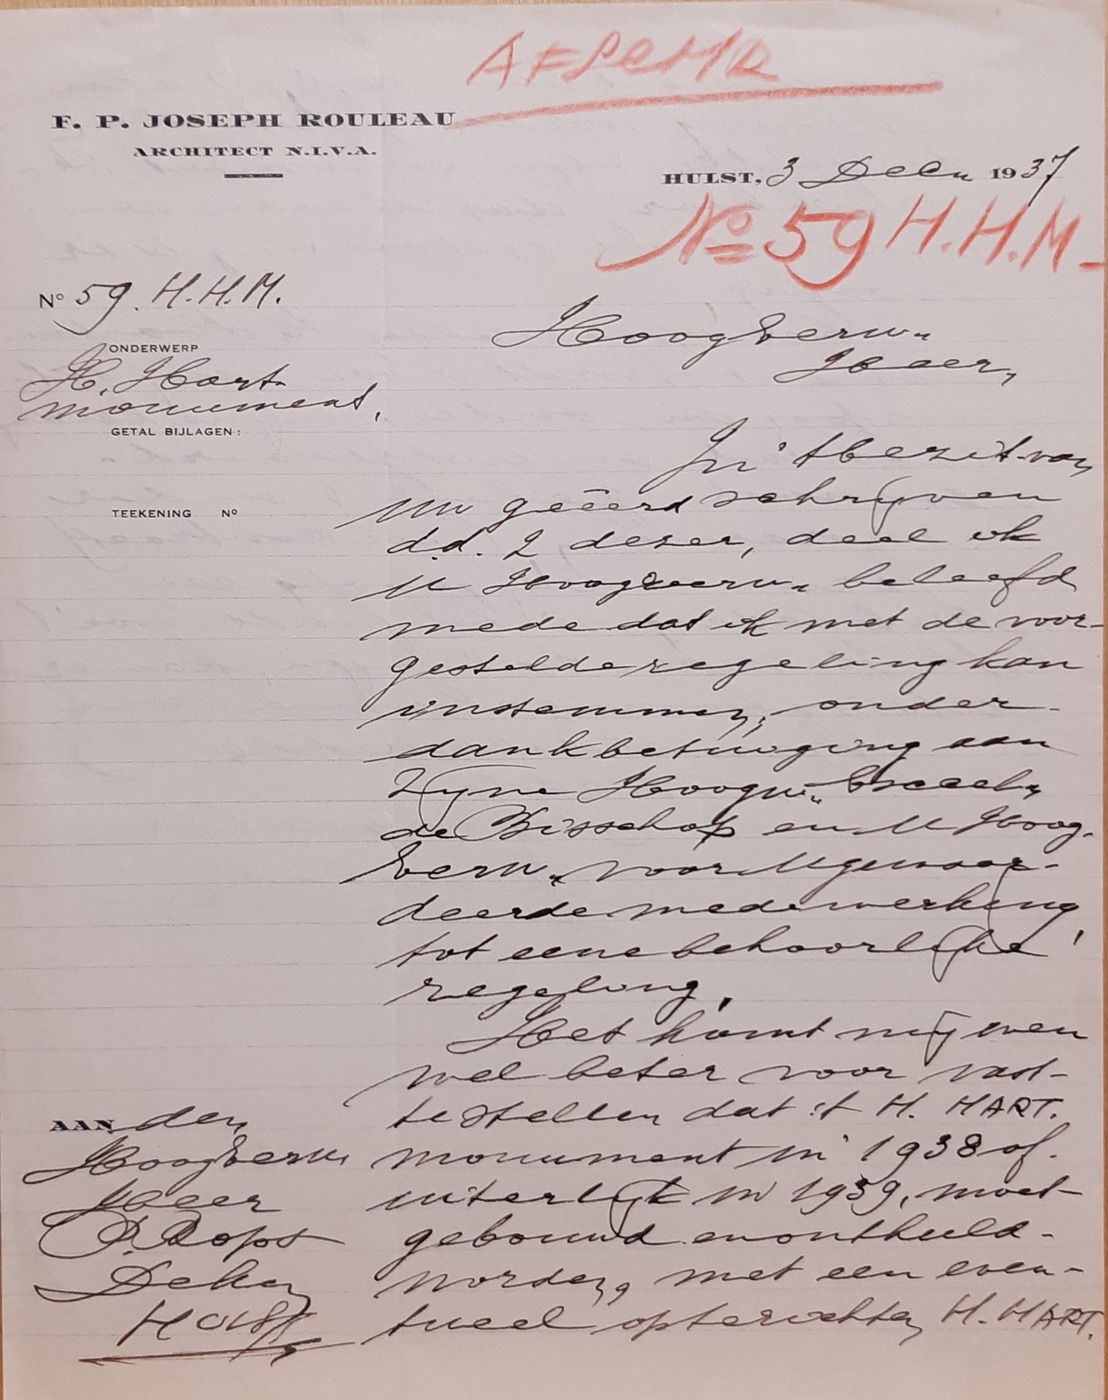 AFSCHR
F. P. JOSEPH ROULEAU
ARCHITECT N.I.V.A.
HULST, 3 Decn 1937
No 59 H.H.M.
No 59. H.H.M.
ONDERWERP
H. Hart
monument,
GETAL BIJLAGEN:
TEEKENING No
HoogEerw.
Heer,
In 't bezit van
Uw geëerd schrijven
d.d. 2 dezer, deel ik
U Hoogeerw. beleefd
mede dat ik met de voor-
gestelde regeling kan
instemmen, onder
dankbetuiging aan
Zijne Hoogw. Excell.
de Bisschop en U Hoog-
Eerw. voor Ugewaar-
deerde medewerking,
tot eene behoorlijke
regeling.
Het komt mij even
wel beter voor vast
te stellen dat 't H. HART.
monument in 1938 of
uiterlijk in 1939, moet
gebouwd en onthuld
worden, met een even-
tueel opterichten H. HART.
AAN den
HoogEerw.
Heer
Deken
HULST